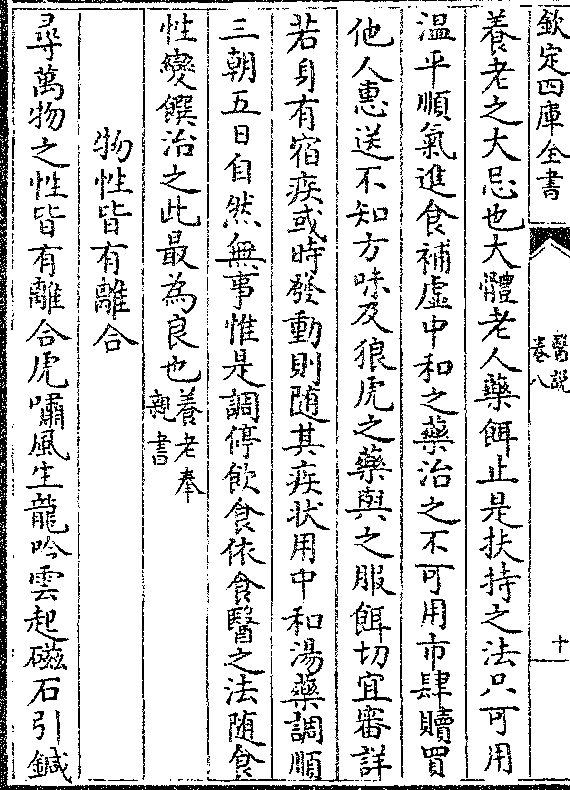 欽定四庫全書
醫説
卷八
十
養老之大忌也大體老人藥餌止是扶持之法只可用
温平順氣進食補虛中和之藥治之不可用市肆贖買
他人惠送不知方味及狼虎之藥與之服餌切宜審詳
若身有宿疾或時發動則随其疾状用中和湯藥調順
三朝五日自然無事惟是調停飲食依食醫之法随食
性變饌治之此最為良也養老奉
親書
物性皆有離合
尋萬物之性皆有離合虎嘯風生龍吟雲起磁石引鍼